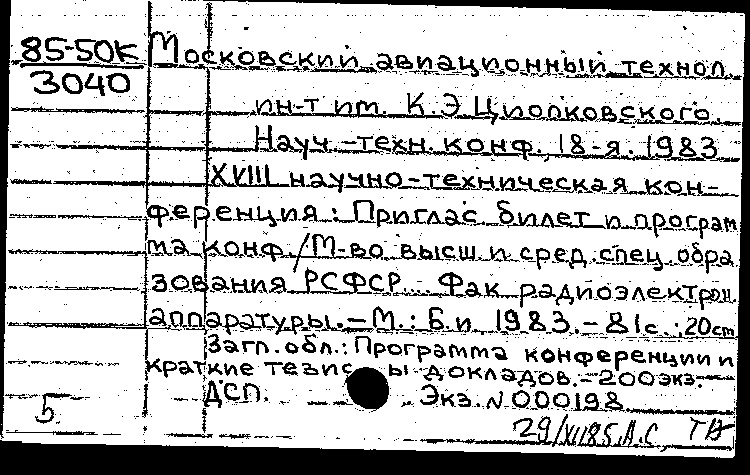 85-50К
3040
Московский авиационный технол.
ин-т им. К.Э.Циолковского.
Науч.-техн. конф., 18-я. 1983
XVIII научно-техническая кон-
ференция: Приглас. билет и програм
ма конф./М-во высш и сред. спец. обра
зования РСФСР. Фак. радиоэлектрон.
аппаратуры.–М.: Б.и. 1983.–81с.;20cm
Загл. обл.: Программа конференции и
краткие тезисы докладов.–200экз.
ДСП. Экз. N000198
5.
29/VII85. А.С.